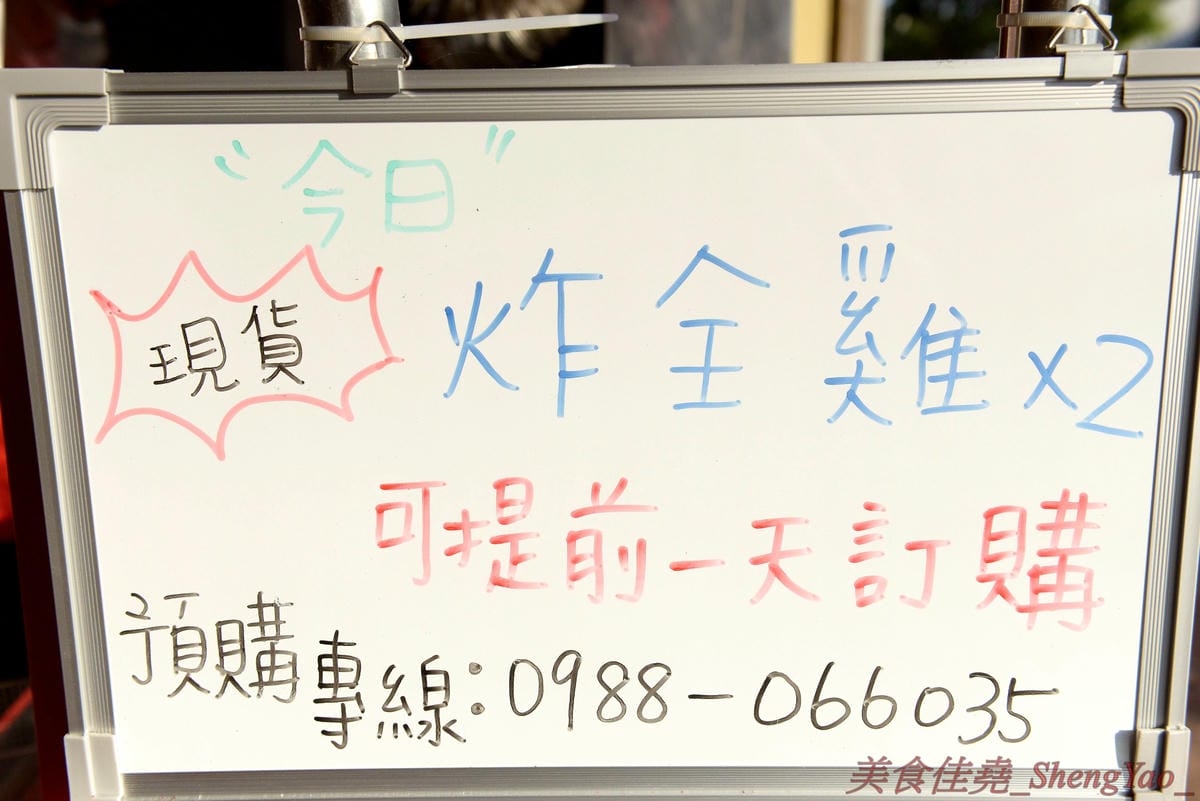 〝今日〞
現貨 炸全雞x2
可提前一天訂購
預購專線:0988-066035
美食佳堯_ShengYao_